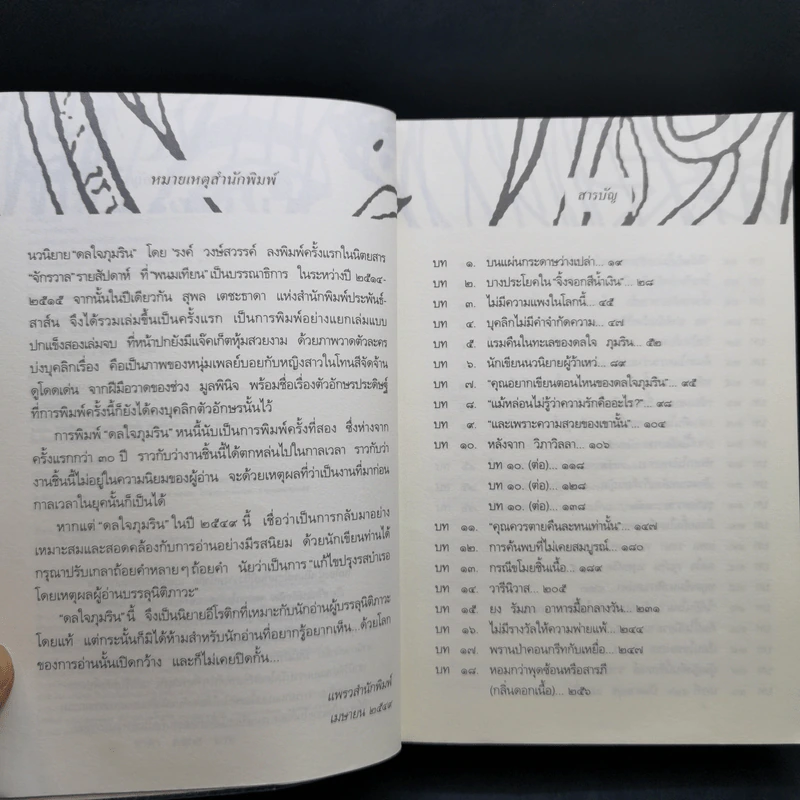 หมายเหตุสำนักพิมพ์
นวนิยาย "ดลใจภุมริน" โดย 'รงค์ วงษ์สวรรค์ ลงพิมพ์ครั้งแรกในนิตยสาร
"จักรวาล" รายสัปดาห์ ที่ "พนมเทียน" เป็นบรรณาธิการ ในระหว่างปี ๒๕๑๔-
๒๕๑๕ จากนั้นในปีเดียวกัน สุพล เตชะธาดา แห่งสำนักพิมพ์ประพันธ์-
สาส์น จึงได้รวมเล่มขึ้นเป็นครั้งแรก เป็นการพิมพ์อย่างแยกเล่มแบบ
ปกแข็งสองเล่มจบ ที่หน้าปกยังมีแจ๊คเก็ตหุ้มสวยงาม ด้วยภาพวาดตัวละคร
บ่งบุคลิกเรื่อง คือเป็นภาพของหนุ่มเพลย์บอยกับหญิงสาวในโทนสีจัดจ้าน
ดูโดดเด่น จากฝีมือวาดของช่วง มูลพินิจ พร้อมชื่อเรื่องตัวอักษรประดิษฐ์
ที่การพิมพ์ครั้งนี้ก็ยังได้คงบุคลิกตัวอักษรนั้นไว้
การพิมพ์ "ดลใจภุมริน" หนนี้นับเป็นการพิมพ์ครั้งที่สอง ซึ่งห่างจาก
ครั้งแรกกว่า ๓๐ ปี ราวกับว่างานชิ้นนี้ได้ตกหล่นไปในกาลเวลา ราวกับว่า
งานชิ้นนี้ไม่อยู่ในความนิยมของผู้อ่าน จะด้วยเหตุผลที่ว่าเป็นงานที่มาก่อน
กาลเวลาในยุคนั้นก็เป็นได้
หากแต่ "ดลใจภุมริน" ในปี ๒๕๔๙ นี้ เชื่อว่าเป็นการกลับมาอย่าง
เหมาะสมและสอดคล้องกับการอ่านอย่างมีรสนิยม ด้วยนักเขียนท่านได้
กรุณาปรับเกลาถ้อยคำหลาย ๆ ถ้อยคำ นัยว่าเป็นการ "แก้ไขปรุงรสบำเรอ
โดยเหตุผลผู้อ่านบรรลุนิติภาวะ"
"ดลใจภุมริน" นี้ จึงเป็นนิยายอีโรติกที่เหมาะกับนักอ่านผู้บรรลุนิติภาวะ
โดยแท้ แต่กระนั้นก็มิได้ห้ามสำหรับนักอ่านที่อยากรู้อยากเห็น...ด้วยโลก
ของการอ่านนั้นเปิดกว้าง และก็ไม่เคยปิดกั้น...
แพรวสำนักพิมพ์
เมษายน ๒๕๔๙
สารบัญ
บท ๑. บนแผ่นกระดาษว่างเปล่า... ๑๙
บท ๒. บางประโยคใน "จิ้งจอกสีน้ำเงิน"... ๒๘
บท ๓. ไม่มีความแพงในโลกนี้... ๔๕
บท ๔. บุคลิกไม่มีคำจำกัดความ... ๔๗
บท ๕. แรมคืนในทะเลของดลใจ ภุมริน... ๕๒
บท ๖. นักเขียนนวนิยายผู้ว้าเหว่... ๘๙
บท ๗. "คุณอยากเขียนตอนไหนของดลใจภุมริน"... ๙๕
บท ๘. "แม้หล่อนไม่รู้ว่าความรักคืออะไร?"... ๙๘
บท ๙. "และเพราะความสวยของเขานั้น"... ๑๐๔
บท ๑๐. หลังจาก วิภาวิลลา... ๑๐๖
บท ๑๐. (ต่อ)... ๑๑๘
บท ๑๐. (ต่อ)... ๑๒๘
บท ๑๐. (ต่อ)... ๑๓๘
บท ๑๑. "คุณควรตายคืนละหนเท่านั้น"... ๑๔๗
บท ๑๒. การค้นพบที่ไม่เคยสมบูรณ์... ๑๘๐
บท ๑๓. กรณีขโมยชิ้นเนื้อ... ๑๘๙
บท ๑๔. วารีนิวาส... ๒๐๕
บท ๑๕. ยง รัมภา อาหารมื้อกลางวัน... ๒๓๑
บท ๑๖. ไม่มีรางวัลให้ความพ่ายแพ้... ๒๔๔
บท ๑๗. พรานป่าคอนกรีทกับเหยื่อ... ๒๔๗
บท ๑๘. หอมกว่าพุดซ้อนหรือสารภี
(กลิ่นดอกเนื้อ)... ๒๕๖